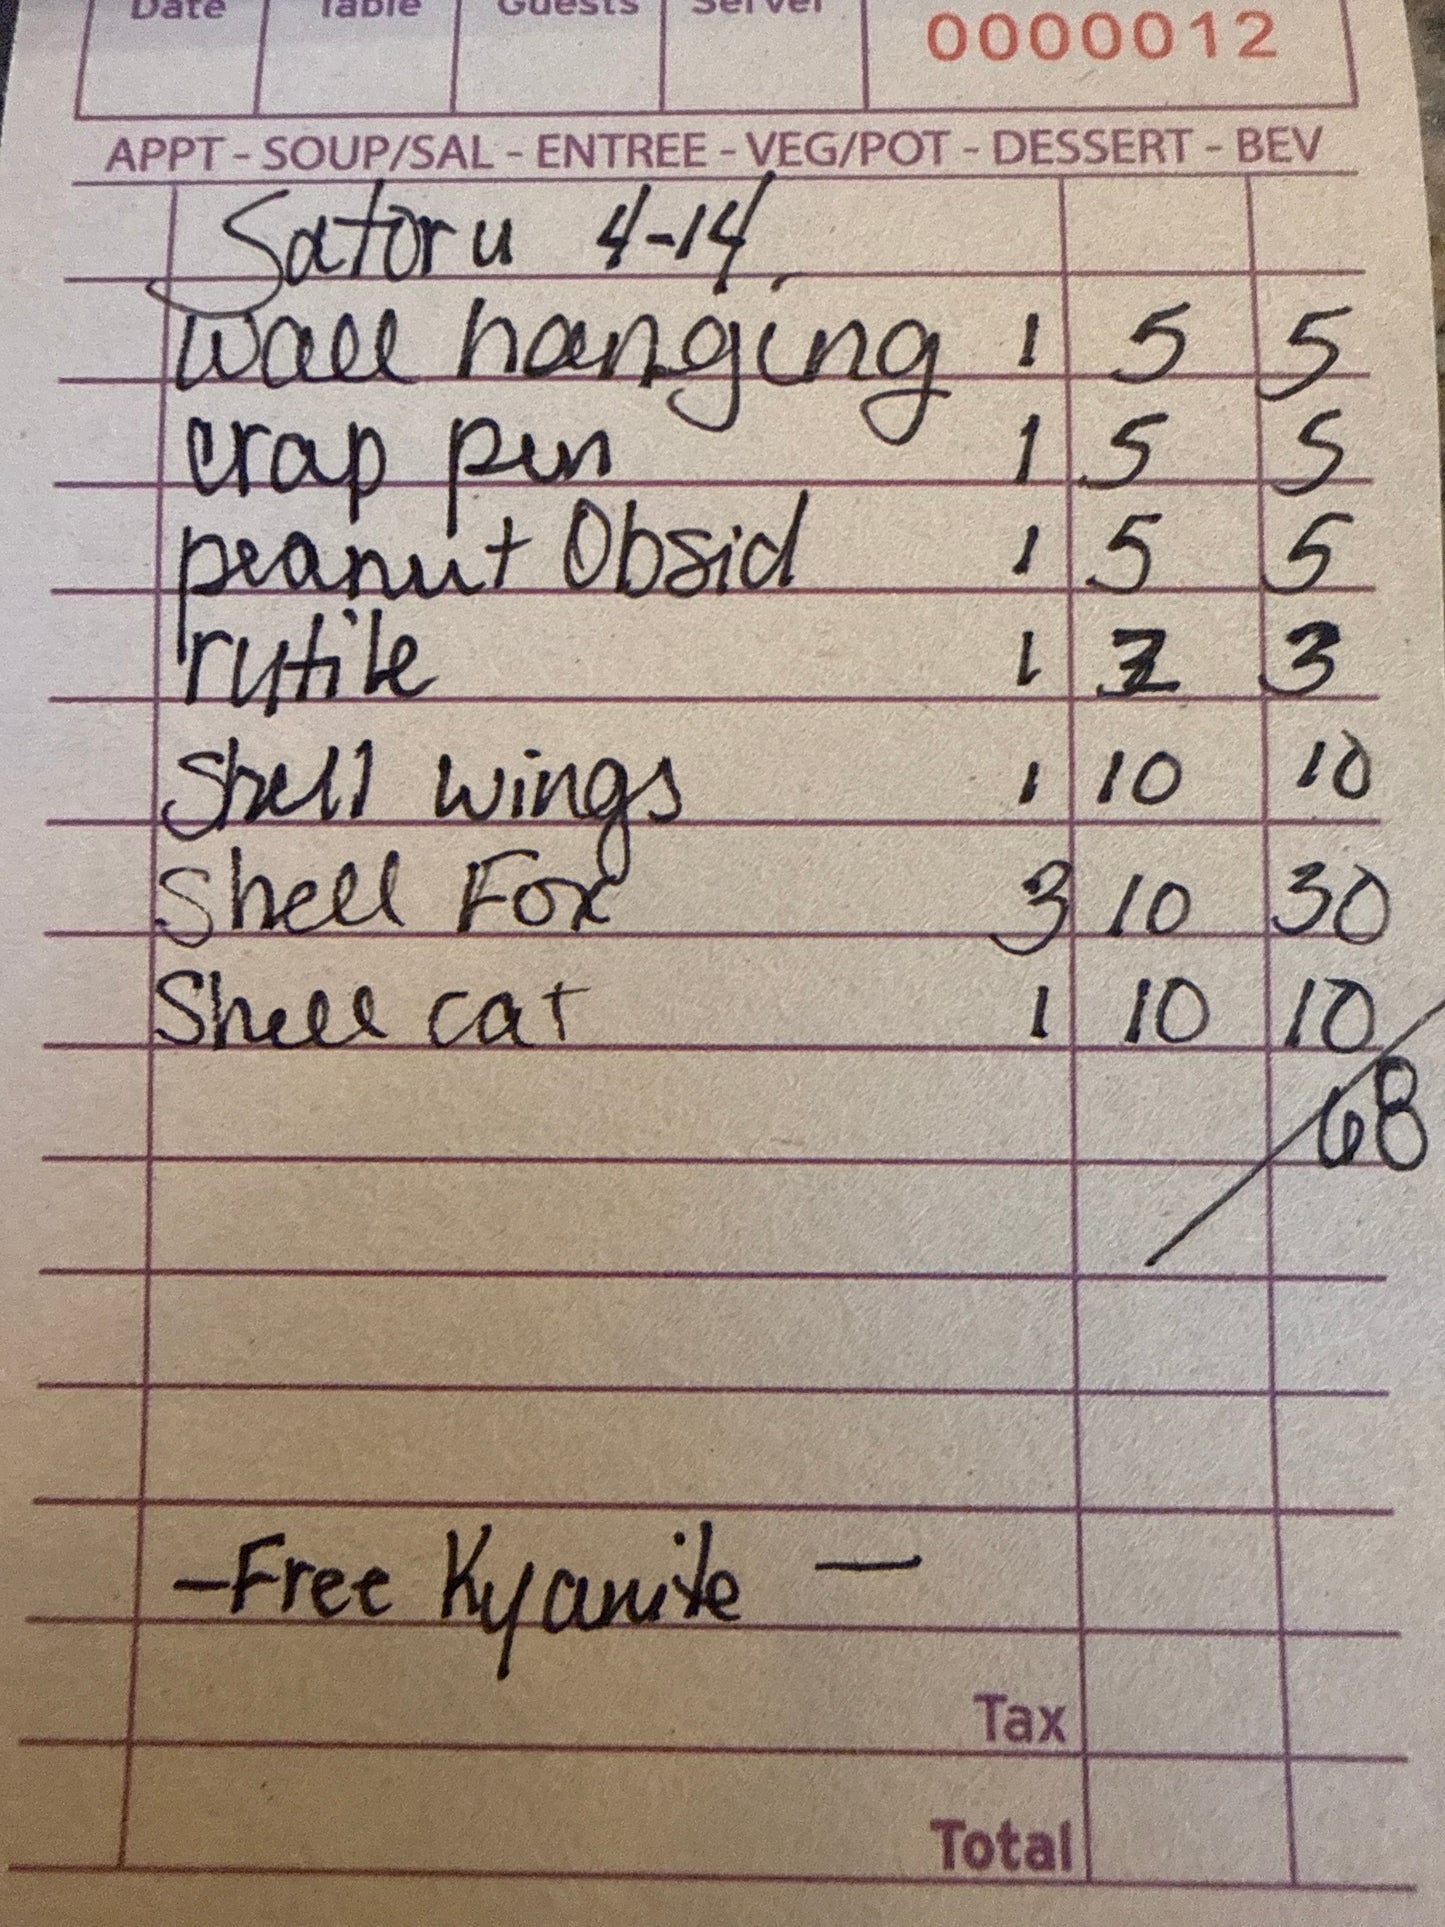 Date Table Guests Server
0000012
APPT - SOUP/SAL - ENTREE - VEG/POT - DESSERT - BEV
Satoru 4-14
wall hanging 1 5 5
crap pen 1 5 5
peanut Obsid 1 5 5
rutile 1 3 3
Shell wings 1 10 10
Shell Fox 3 10 30
Shell cat 1 10 10
68
- Free Kyanite -
Tax
Total